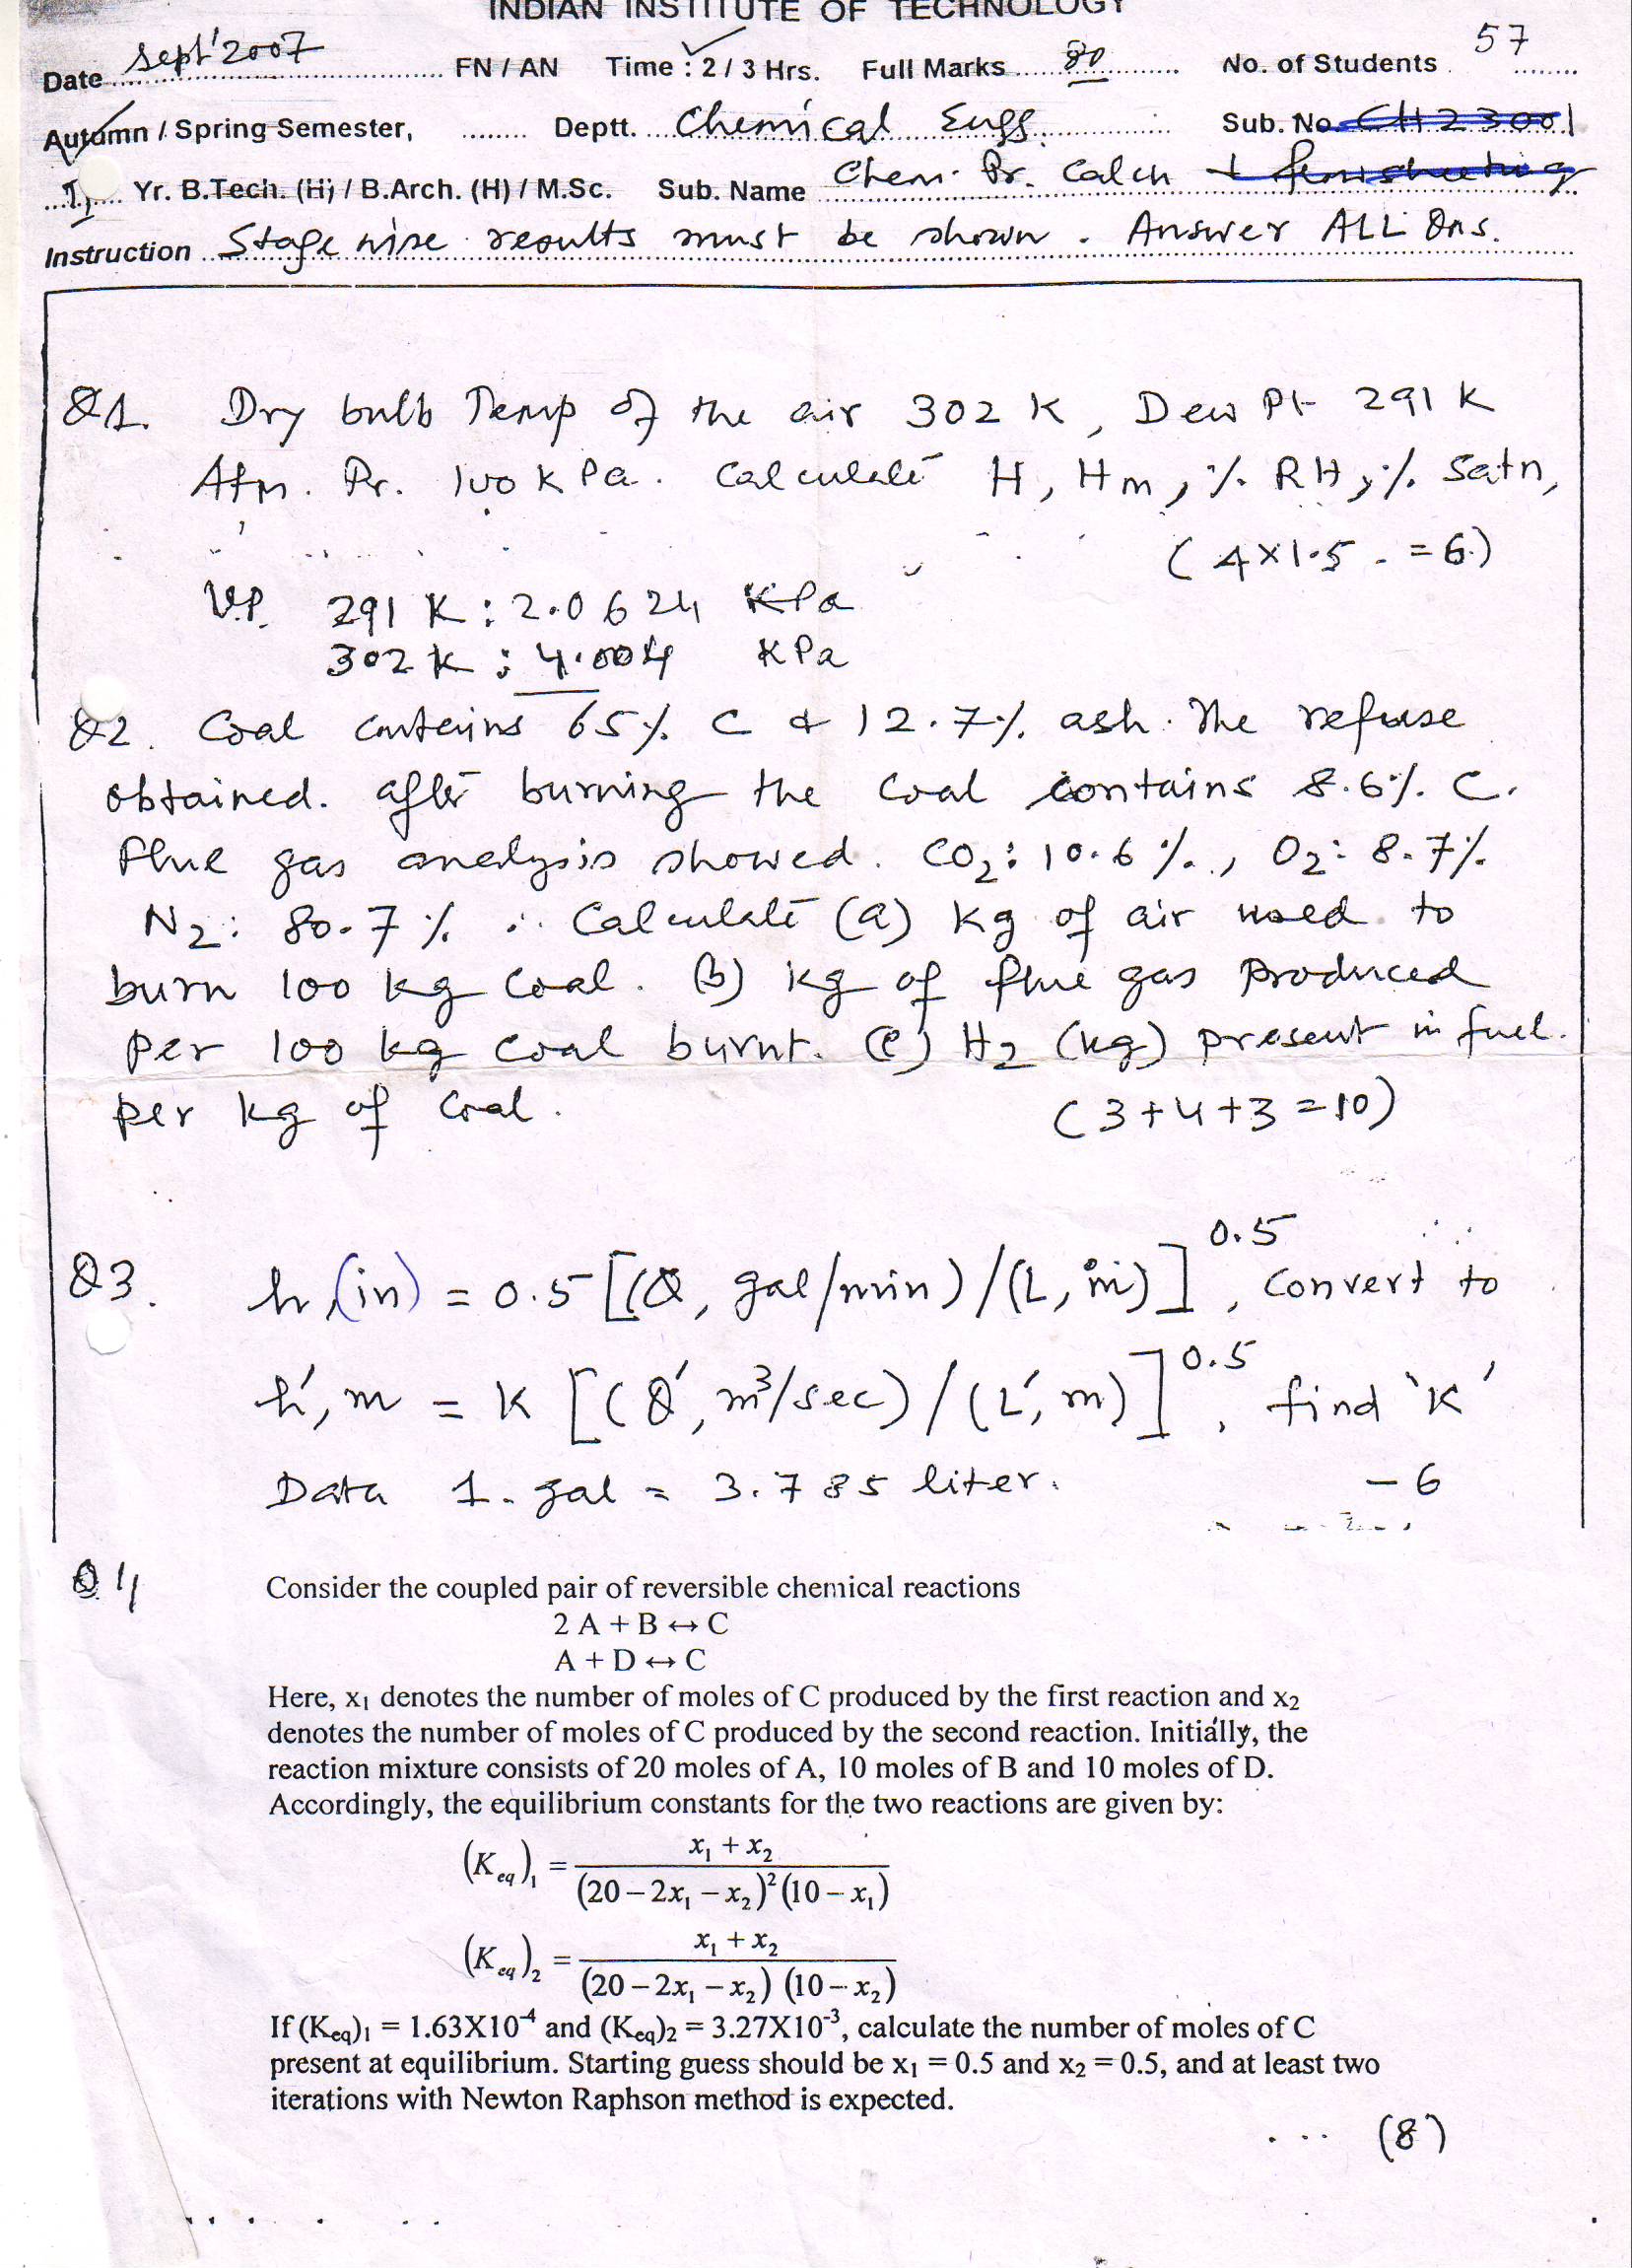 INDIAN INSTITUTE OF TECHNOLOGY
Date Sept'2007 FN / AN Time : 2 / 3 Hrs. Full Marks 80 No. of Students 57
Autumn / Spring Semester, Deptt. Chemical Engg. Sub. No. CH23001
II Yr. B.Tech. (H) / B.Arch. (H) / M.Sc. Sub. Name Chem. Pr. Calcn +
Instruction Stage wise results must be shown. Answer ALL Qns.
Q1. Dry bulb Temp of the air 302 K, Dew Pt 291 K
Atm. Pr. 100 KPa. Calculate H, Hm, % RH, % Satn,
(4x1.5 = 6)
V.P. 291 K : 2.0624 KPa
302 K : 4.004 KPa
Q2. Coal contains 65% C & 12.7% ash. The refuse
obtained. after burning the coal contains 8.6% C.
Flue gas analysis showed. CO2: 10.6 %., O2: 8.7%
N2: 80.7 % ∴ Calculate (a) kg of air used to
burn 100 kg coal. (b) kg of flue gas produced
per 100 kg coal burnt. (c) H2 (kg) present in fuel.
per kg of coal. (3+4+3=10)
Q3. h,(in) = 0.5 [(Q, gal/min)/(L, in)]^0.5, convert to
h', m = K [(Q', m³/sec)/(L', m)]^0.5, find 'K'
Data 1. gal = 3.785 liter. - 6
Q4 Consider the coupled pair of reversible chemical reactions
2 A + B ↔ C
A + D ↔ C
Here, x₁ denotes the number of moles of C produced by the first reaction and x₂
denotes the number of moles of C produced by the second reaction. Initially, the
reaction mixture consists of 20 moles of A, 10 moles of B and 10 moles of D.
Accordingly, the equilibrium constants for the two reactions are given by:
(K_eq)₁ = (x₁ + x₂) / ((20 – 2x₁ – x₂)² (10 – x₁))
(K_eq)₂ = (x₁ + x₂) / ((20 – 2x₁ – x₂) (10 – x₂))
If (Keq)₁ = 1.63X10⁻⁴ and (Keq)₂ = 3.27X10⁻³, calculate the number of moles of C
present at equilibrium. Starting guess should be x₁ = 0.5 and x₂ = 0.5, and at least two
iterations with Newton Raphson method is expected.
... (8)